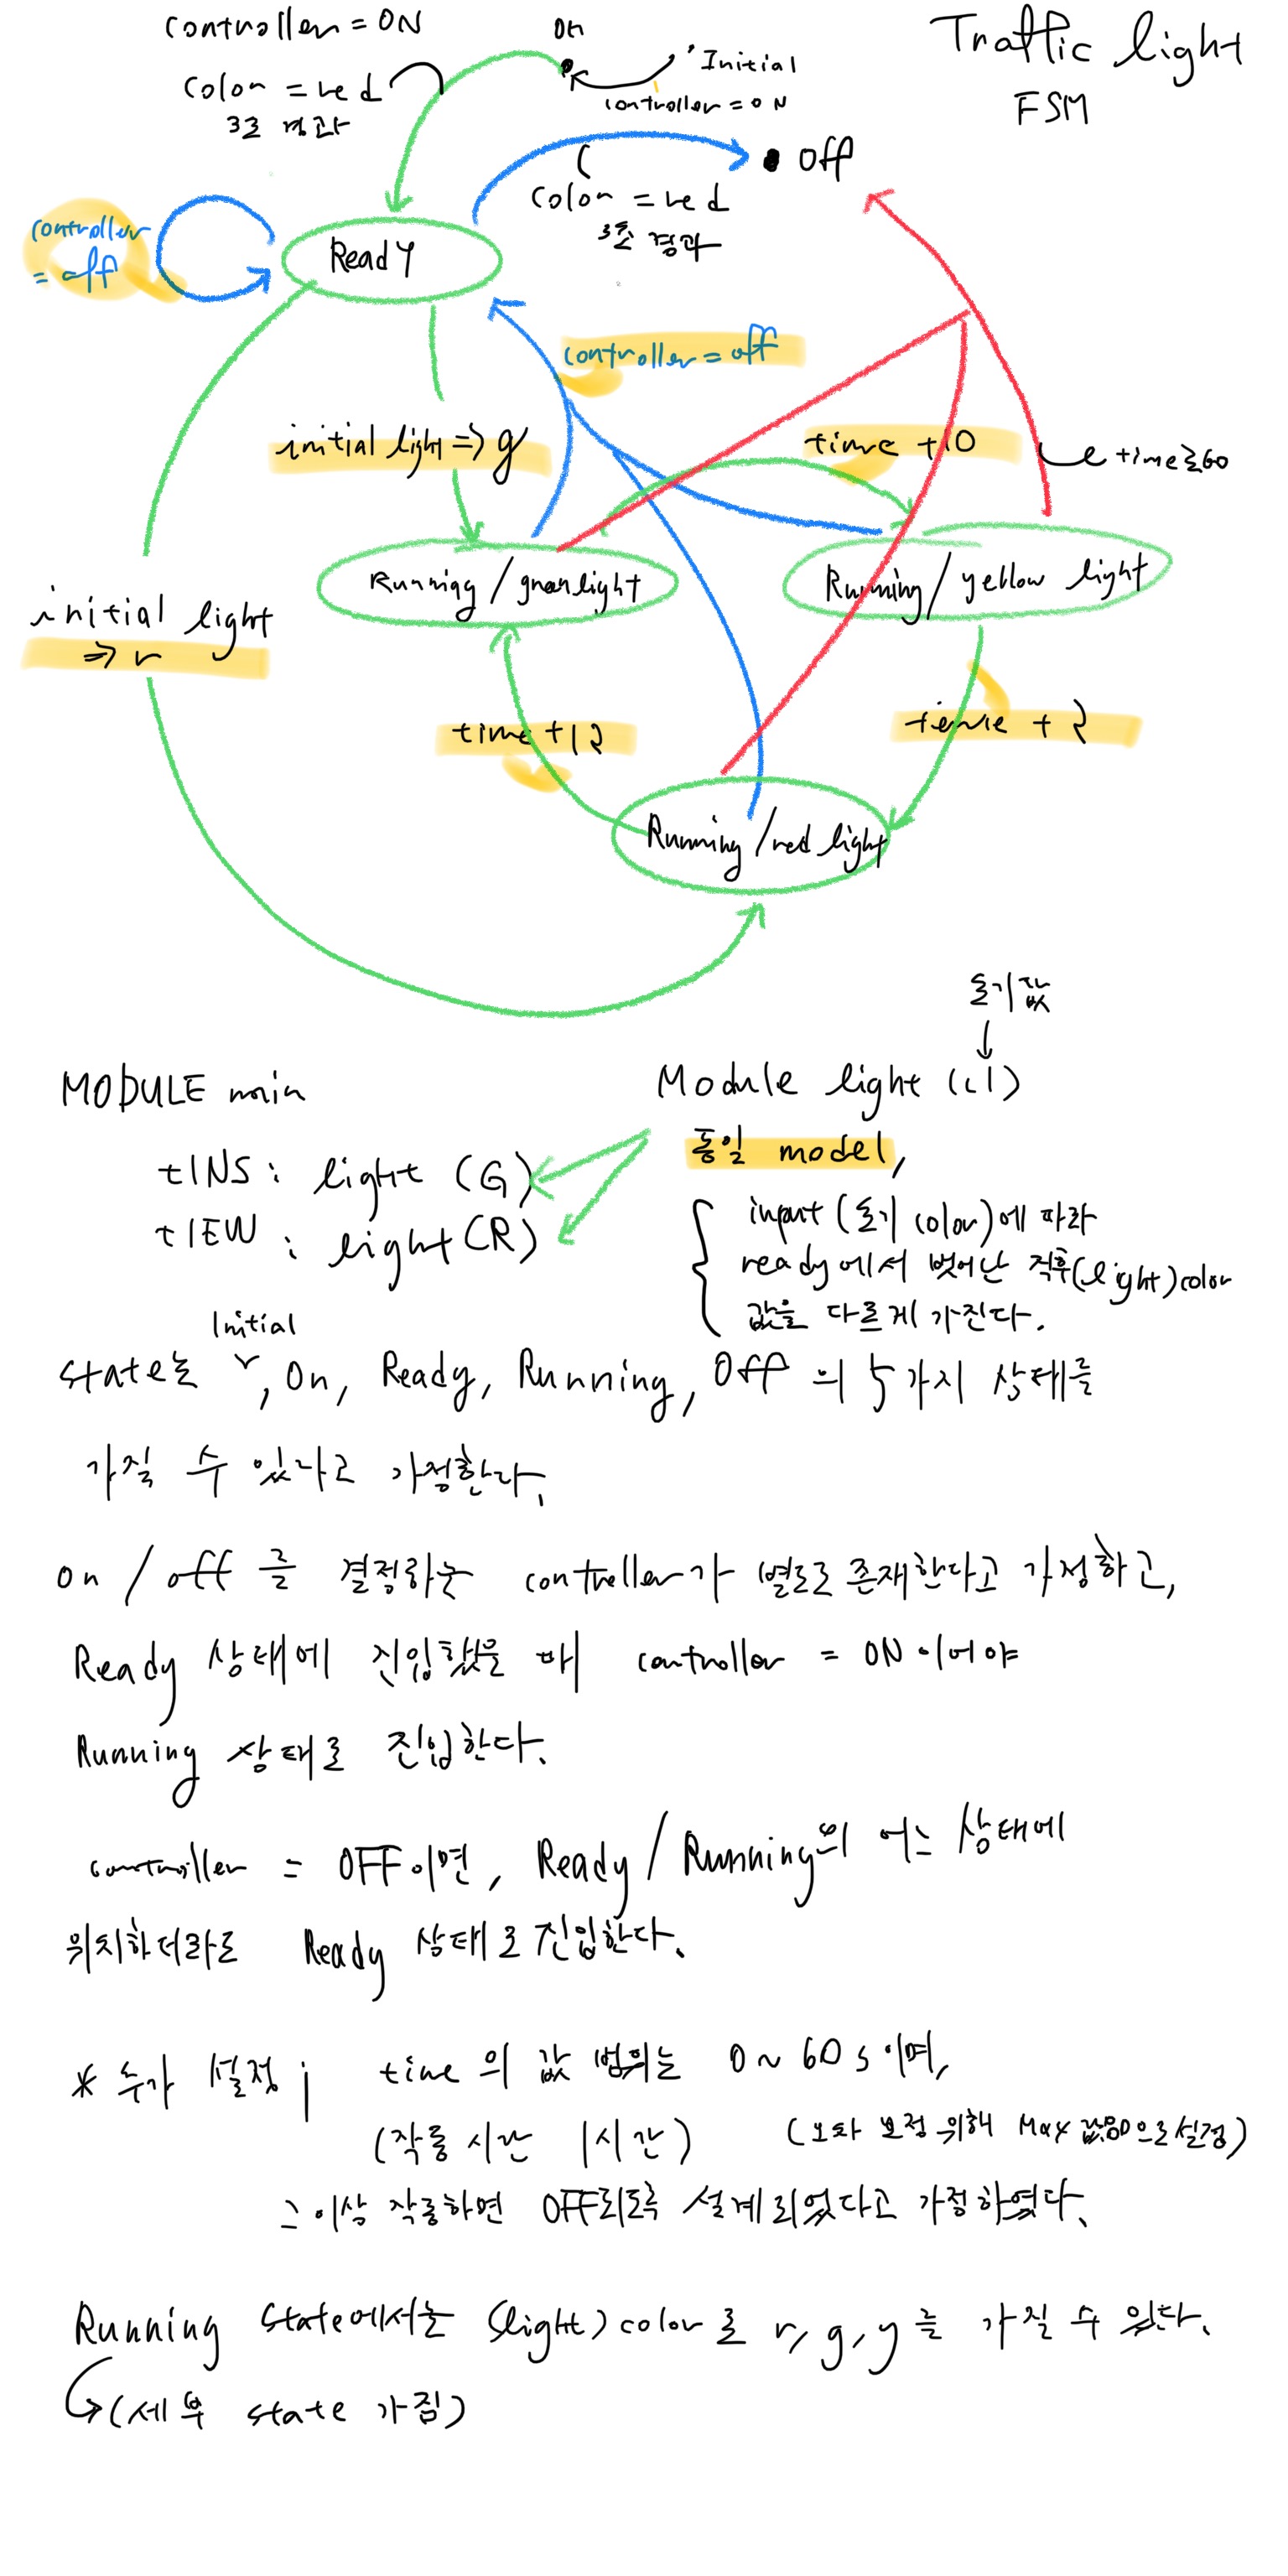 Traffic light
FSM
controller = ON
color = red
3초 경과
on
Initial
controller = ON
off
color = red
3초 경과
controller
= off
Ready
controller = off
initial light => g
time +10
time ≥ 60
Running / green light
Running / yellow light
initial light
=> r
time +12
time + 2
Running / red light
초기값
MODULE main
Module light (cl)
동일 model,
tlNS : light (G)
tlEW : light (R)
input (초기 color)에 따라
ready에서 벗어난 직후(light) color
값을 다르게 가진다.
Initial
state는 , On, Ready, Running, Off 의 5가지 상태를
가질 수 있다고 가정한다.
on / off 를 결정하는 controller가 별도로 존재한다고 가정하고,
Ready 상태에 진입했을 때 controller = ON 이어야
Running 상태로 진입한다.
controller = OFF이면, Ready / Running의 어느 상태에
위치하더라도 Ready 상태로 진입한다.
* 추가 설정 ; time 의 값 범위는 0 ~ 60 s 이며,
(작동 시간 1시간) (오차 보정 위해 Max 값으로 설정)
그 이상 작동하면 OFF되도록 설계되었다고 가정하였다.
Running state에서는 (light) color로 r, g, y 를 가질 수 있다.
(세부 state 가짐)